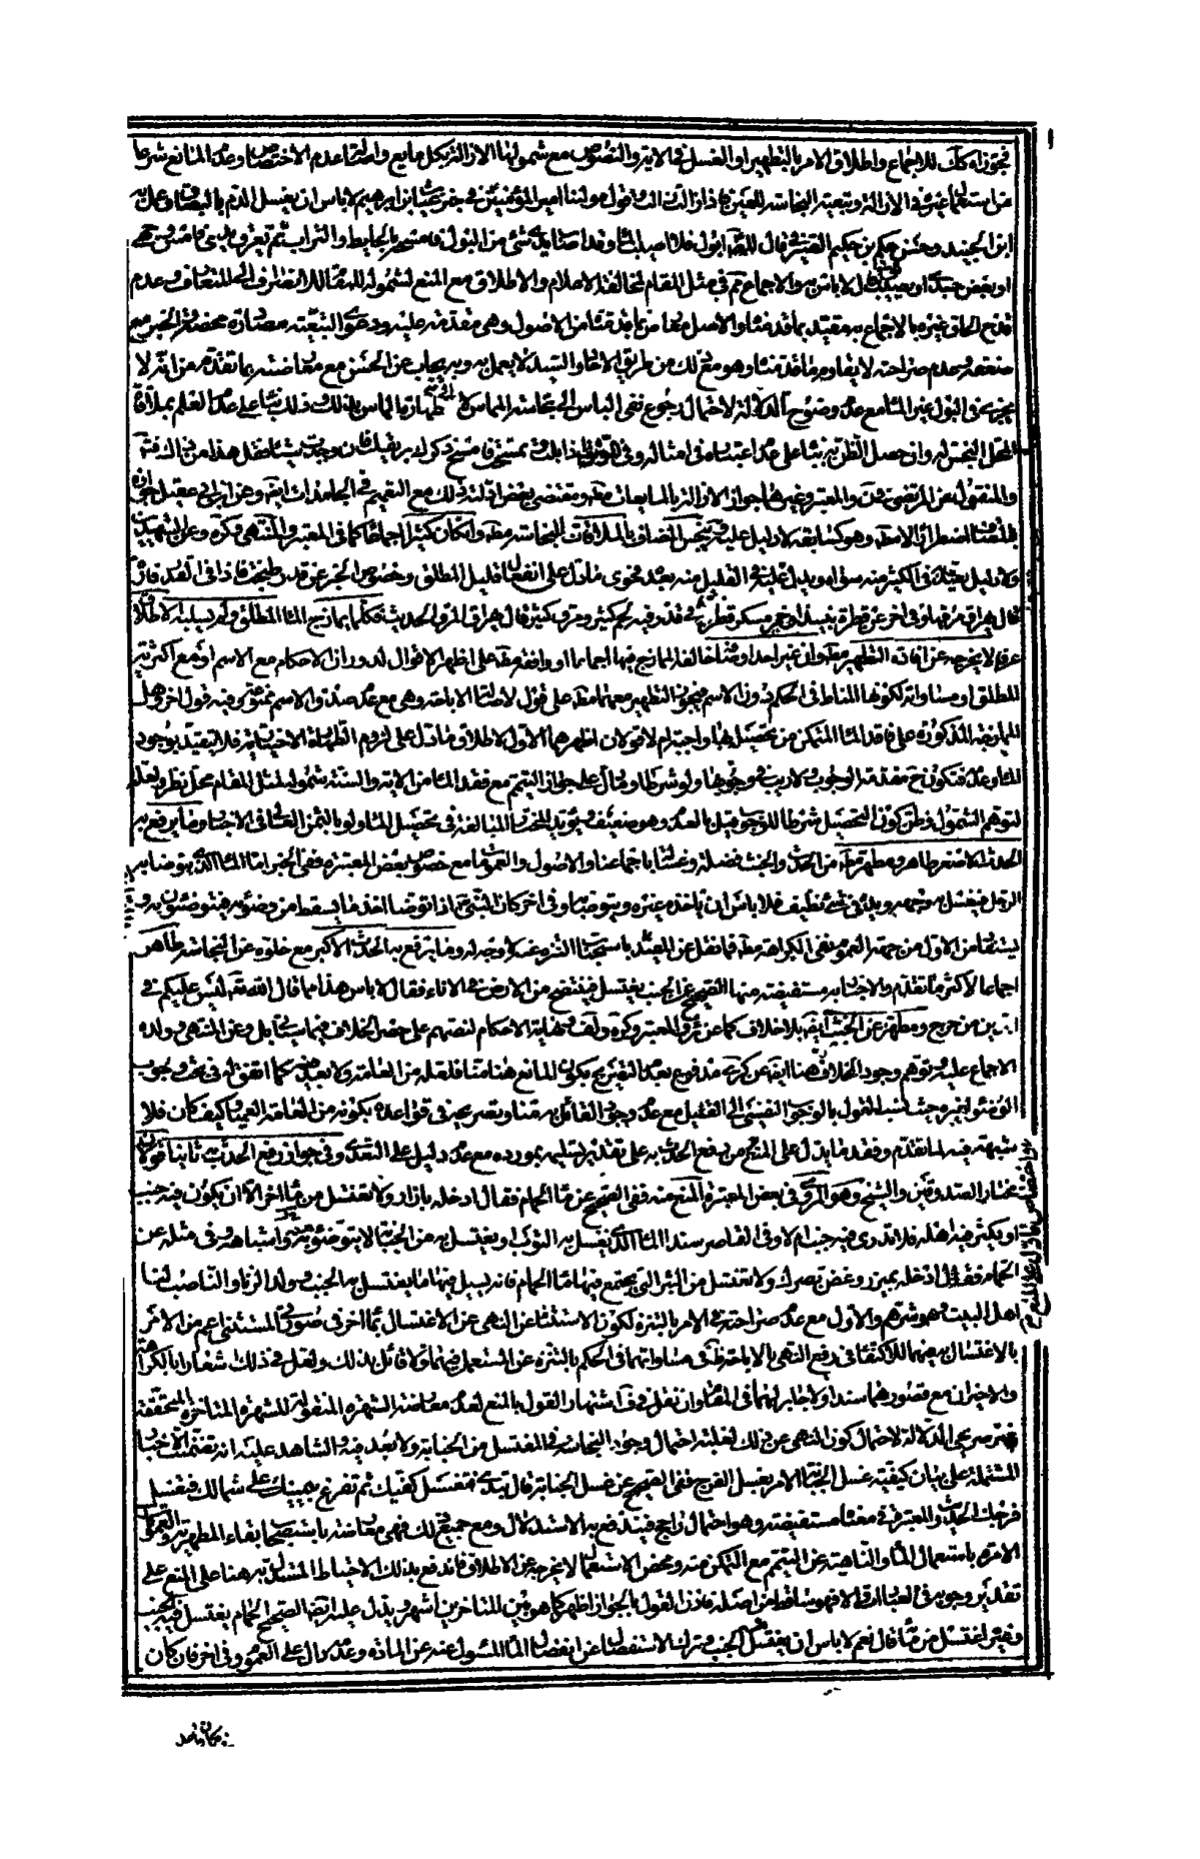 فتجوزانه كك للاجماع واطلاق الامر بالتطهير او الغسل في الاية والنصوص مع شمولها الازالة بكل مايع واصالة عدم الاختصاص وعدم المانع شرعا
من استعمال غيره في الازالة وتبعية النجاسة للعين فاذا زالت زالت وقول مولنا امير المؤمنين في خبر غياث بن ابرهيم لا باس ان يغسل الدم بالبصاق وعليه
ابن الجنيد وحسن حكم بن حكيم الصيرفي قال للصادق ابول فلا اصيب الماء وقد اصاب يدي شئ من البول فامسحه بالحايط والتراب ثم تعرق يدي فامس وجهي
او بعض جسدي او يصيب ثوبي قال لا باس به والاجماع في مثل المقام لمخالفة الاعلام والاطلاق مع المنع لشموله للمقام لانصرافه الى المتعارف وعدم
قدح الحاق غيره بالاجماع به مقيد بما قدمناه والاصل معارض بما قدمنا من الاصول وهي مقدمة عليه ودعوى التبعية مصادرة محضة والخبر مع
ضعفه وعدم صراحته لا يقاوم ما قدمناه وهو مع ذلك من طريق الاحاد والسيد لا يعمل به وبه يجاب عن الحسن مع معارضته بما تقدمه من انه لا
يجزي في البول غير الماء مع عدم وضوح الدلالة لاحتمال رجوع نفي الباس الى نجاسة الماس لا طهارة الماس بذلك وذلك بناء على عدم العلم بملاقاة
المحل النجس له وان حصل الظن به بناء على عدم اعتباره في امثاله وفي الموثق اذا بلت وتمسحت فامسح ذكرك بريقك فان وجدت شيئا فقل هذا من ذاك
والمنقول عن المرتضى والمعتبر وغيرهما جواز الازالة بالمايعات مطلقا ومقتضى بعض ادلته ذلك مع التعميم في الجامدات ايضا وعن ابن ابي عقيل جوازه
بالمضاف اضطرارا لا مطلقا وهو كسابقه لا دليل عليه وينجس المضاف بالملاقات للنجاسة مطلقا وان كان كثيرا اجماعا كما في المعتبر والمنتهى وكره وعن الشهيدين
ولا دليل يعتد به في الكثير منه سواه ويدل عليه في القليل منه بعد فحوى ما دل على انفعال قليل المطلق وخصوص الخبر عن قدر طبخت فاذا في القدر فارة
قال يهراق مرقها وفي اخر عن قطرة نبيذ او خمر مسكر قطرت في قدر فيه لحم كثير ومرق كثير قال يهراق المرق الحديث فكلما يمازج الماء المطلق ولم يسلبه الاطلاق
عرفا لا يخرجه عن افادة التطهير مطلقا وان غير احد اوصافه الممازج فيها اجماعا او وافقه مطلقا على اظهر الاقوال لدوران الاحكام مع الاسم او مع اكثرية
المطلق او مساواته لكونها المناط في الحكم دون الاسم فيجوز التطهير معهما مطلقا على قول لاصالة الاباحة وهي مع عدم صدق الاسم ممنوعة وفيه قول اخر وهل
الممازجة المذكورة على فاقد الماء المتمكن من تحصيله بها واجبة ام لا قولان اظهرهما الاول لاطلاق ما دل على لزوم الطهارة الاختيارية فلا يتقيد بوجود
الماء وعدمه فتكون ح مقدمة الوجوب ولا ريب في وجوبها ولو شرطا وما دل على جواز التيمم مع فقد الماء من الاية والسنة شموله لمثل المقام محل نظر ولعله
لتوهم الشمول ظن كون التحصيل شرطا للوجوب فقيل بالعدم وهو ضعيف ويؤيد المختار المبالغة في تحصيل الماء ولو بالثمن الغالي في الاخبار وما يرفع به
الحدث الاصغر طاهر ومطهر مطلقا من الحدث والخبث فضلة وغسالة باجماعنا والاصول والعمومات مع خصوص بعض المعتبرة ففي الخبر اما الماء الذي يتوضا به
الرجل فيغسل به وجهه ويده في شئ نظيف فلا باس ان ياخذه غيره ويتوضا به وفي اخر كان النبي اذا توضا اخذ ما يسقط من وضوئه فيتوضئون به و
يستفاد من الاول من جهة العموم نفي الكراهة مطلقا فما نقل عن المفيد باستحباب التنزه عنه لا وجه له وما يرفع به الحدث الاكبر مع خلوه عن النجاسة طاهر
اجماعا لاكثر ما تقدم والاخبار به مستفيضة منها الصحيح عن الجنب يغتسل فينتضح من الارض في الاناء فقال لا باس هذا مما قال الله تعالى ليس عليكم في
الدين من حرج ومطهر عن الخبث ايضا بلا خلاف كما عن سر والمعتبر وكره ولف ونهاية الاحكام لنصهم على حصر الخلاف فيما سياتي بل وعن المنتهى وولده
الاجماع عليه وتوهم وجود الخلاف هنا ايضا عن كرى مدفوع بعدم التصريح بكون المانع هنا منا فلعله من العامة ولا بعد فيه كما اتفق له في بحث وجوب
الوضوء لغيره حيث نسب القول بالوجوب النفسي الى القيل مع عدم وجود القائل به منا وتصريحه في قواعده بكونه من العامة العمياء وكيف كان فلا
شبهة فيه لما تقدم وفقد ما يدل على المنع من رفع الحدث به على تقدير تسليمه بمورده مع عدم دليل على التعدي وفي جواز رفع الحدث به ثانيا قولان
مختار الصدوقين والشيخ وهو المروي في بعض المعتبرة المنع منه ففي الصحيح عن ماء الحمام فقال ادخله بازار ولا تغتسل من ماء اخر الا ان يكون فيه جنب
او يكثر فيه اهله فلا تدري فيه جنب ام لا وفي القاصر سندا الماء الذي يغسل به الثوب او يغتسل به من الجنابة لا يتوضؤ منه واشباهه وفي مثله عن
الحمام فقال ادخله بميزر وغض بصرك ولا تغتسل من البئر التي يجتمع فيها ماء الحمام فانه يسيل فيها ما يغتسل به الجنب وولد الزنا والناصب لنا
اهل البيت وهو شرهم والاول مع عدم صراحته في الامر بالتنزه لكون الاستثناء عن النهي عن الاغتسال بماء اخر في صورتي المستثنى اعم من الامر
بالاغتسال به فيهما للاكتفاء في رفع النهي بالاباحة مطلقا في مساواتهما في الحكم بالتنزه عن المستعمل فيهما ولا قائل بذلك ولعل في ذلك اشعارا بالكراهة
والاخيران مع قصورهما سندا ولا جابر لهما في المقام وان نقل في ف اشتهار القول بالمنع لعدم معارضة الشهرة المنقولة للشهرة المتاخرة المحققة
غير صريحي الدلالة لاحتمال كون النهي عن ذلك لغلبة احتمال وجود النجاسة في المغتسل من الجنابة ولا بعد فيه والشاهد عليه انه تضمنت الاخبار
المشتملة على بيان كيفية غسل الجنابة الامر بغسل الفرج ففي الصحيح عن غسل الجنابة قال تبدء فتغسل كفيك ثم تفرغ بيمينك على شمالك فتغسل
فرجك الحديث والمعتبرة في معناه مستفيضة وهو احتمال راجح فيتد ضربه الاستدلال ومع جميع ذلك فهي معارضة باستصحاب بقاء المطهرية والعمومات
الامرة باستعمال الماء والناهية عن التيمم مع التمكن منه ومحض الاستعمال لا يخرجه عن الاطلاق فاندفع بذلك الاحتياط المستدل به هنا على المنع على
تقدير وجوبه في العبادة والا فهو ساقط من اصله فاذن القول بالجواز اظهر كما هو بين المتاخرين اشهر ويدل عليه ايضا الصحيح الحمام يغتسل فيه الجنب
وغيره اغتسل من مائه قال نعم لا باس ان يغتسل منه الجنب وترك الاستفصال عن انفصال الماء المسئول عنه عن المادة وعدمه دال على العموم وفي اخر فان كان
في مكان واحد